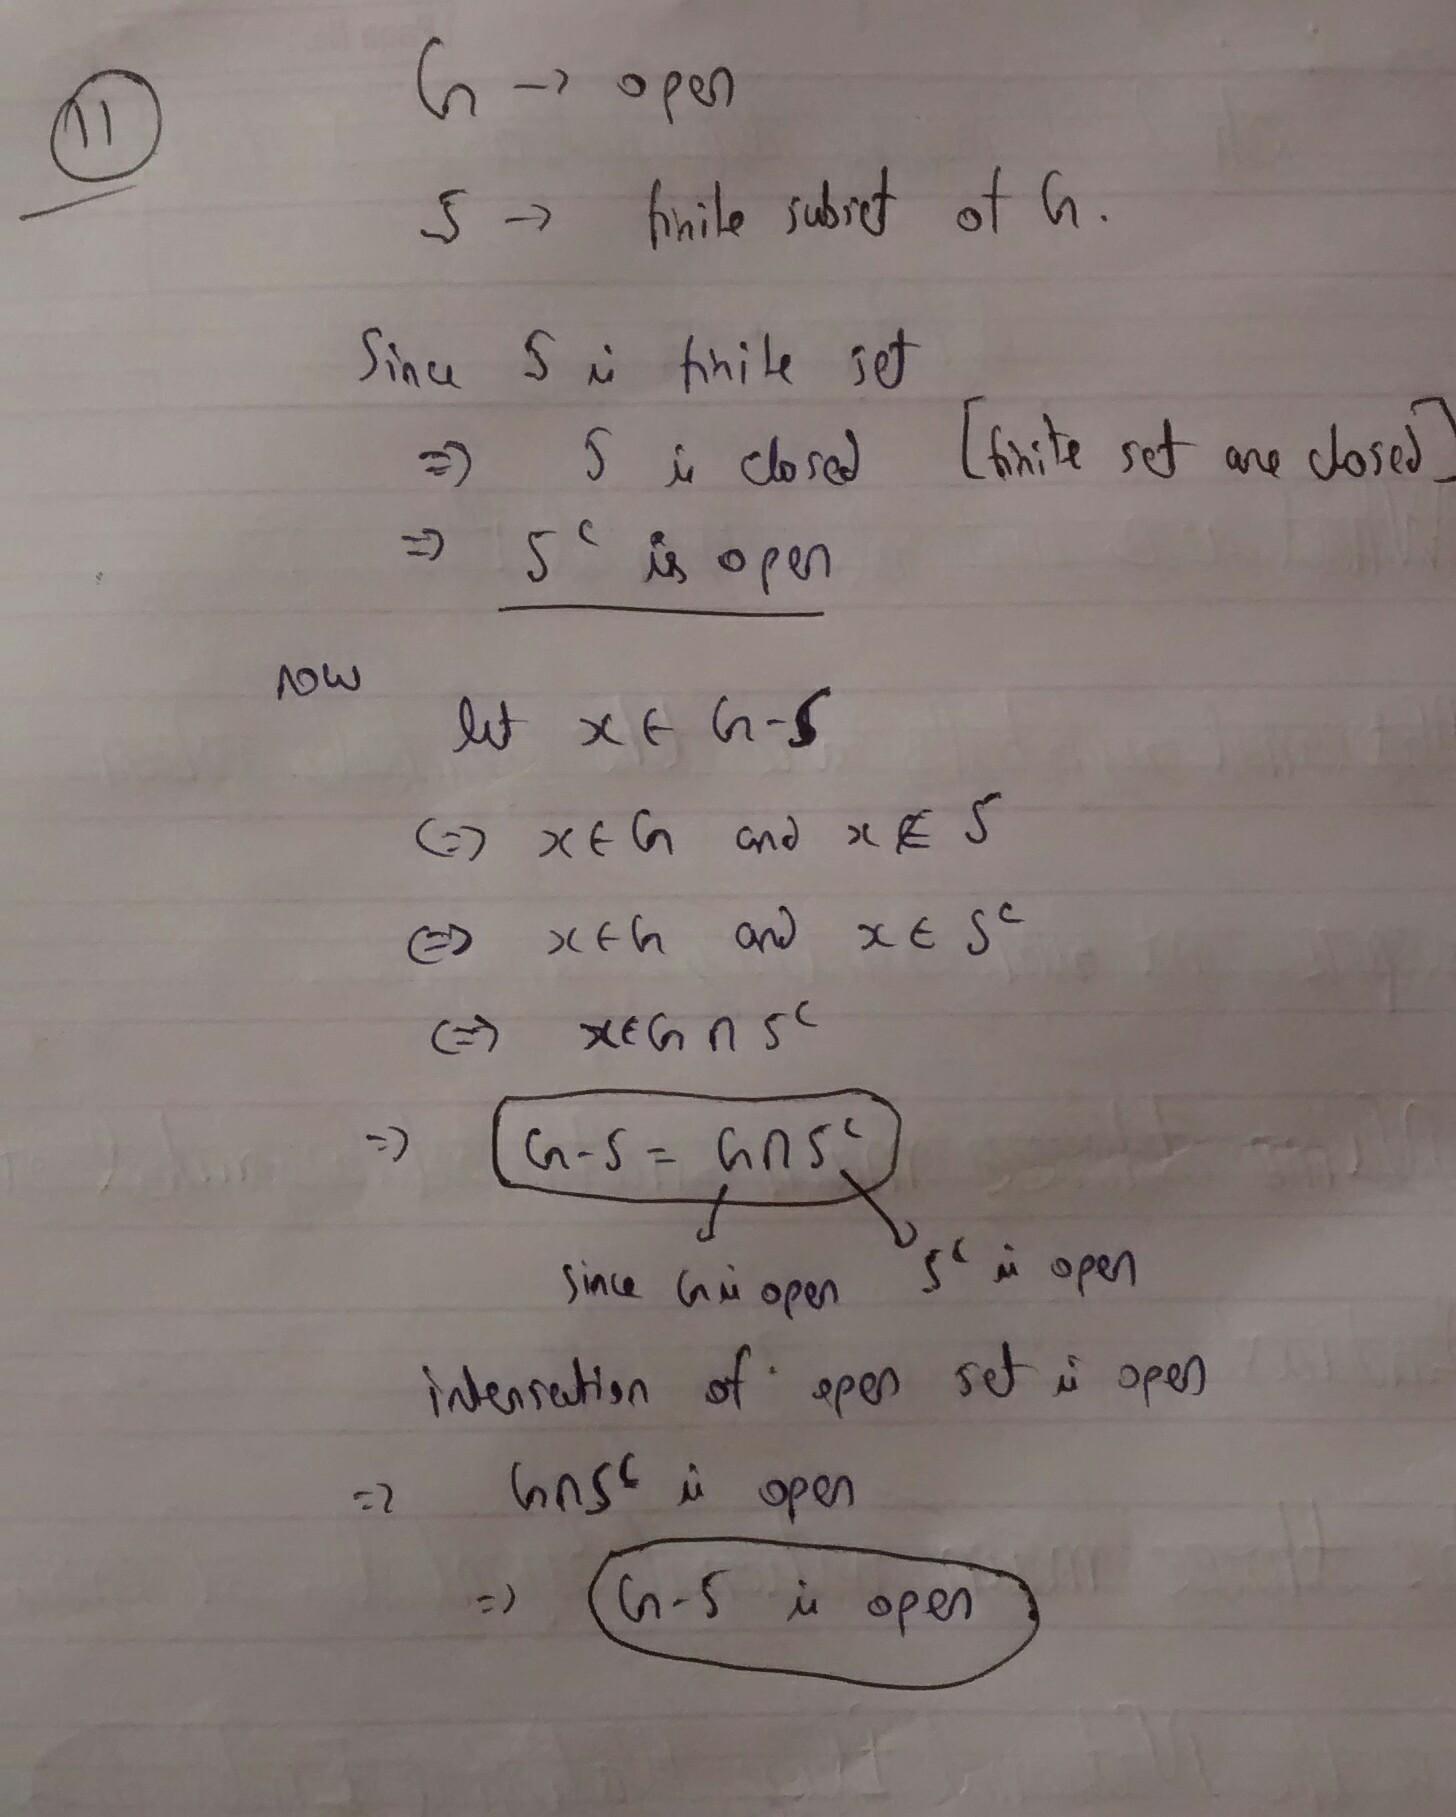 11
G → open
S → finite subset of G.
Since S is finite set
⇒ S is closed [finite set are closed]
⇒ S^c is open
now
let x ∈ G-S
⇔ x ∈ G and x ∉ S
⇔ x ∈ G and x ∈ S^c
⇔ x ∈ G ∩ S^c
⇒ G-S = G∩S^c
since G is open S^c is open
intersection of open set is open
⇒ G∩S^c is open
⇒ G-S is open